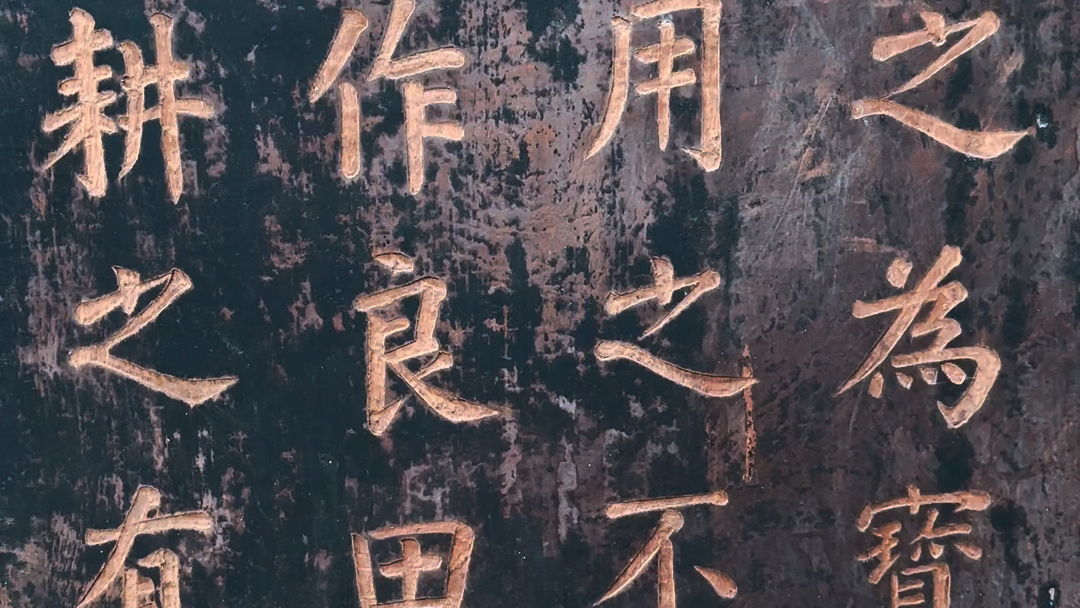 之為寶
用之不
作良田
耕之有